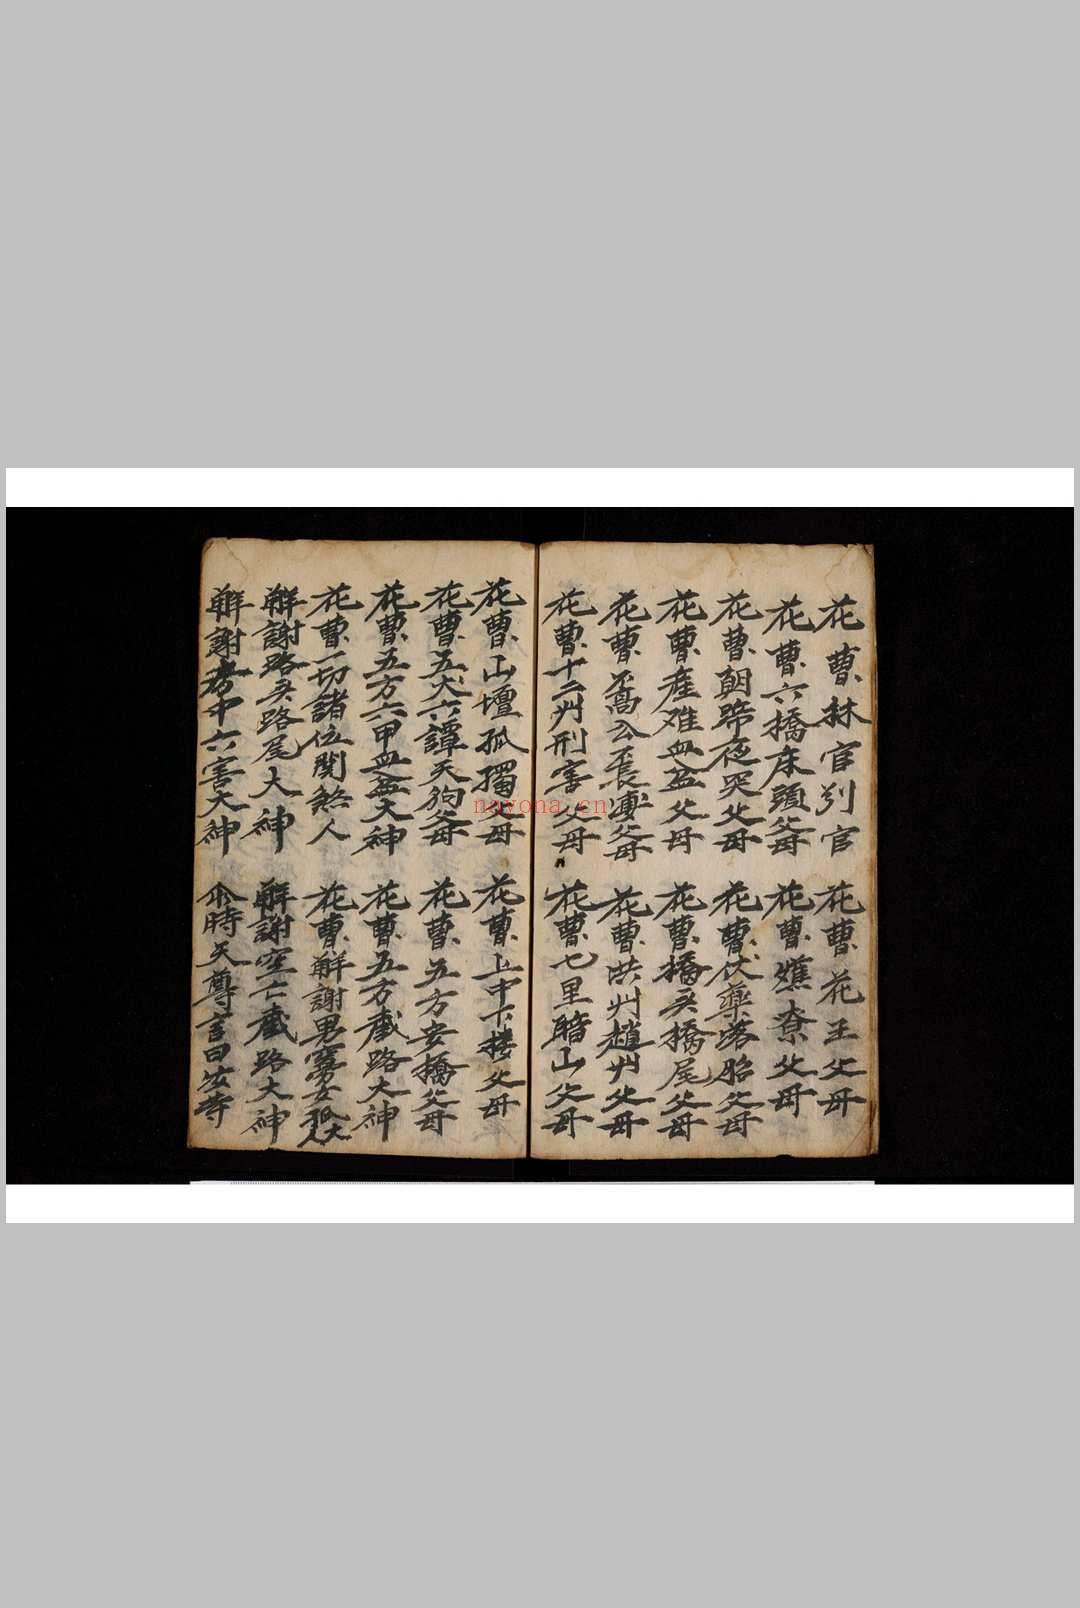 花曹林官別官　花曹花王父母
花曹六橋床頭父母　花曹爊寮父母
花曹朝蹄夜哭父母　花曹伏藥落胎父母
花曹産难血盆父母　花曹橋头橋尾父母
花曹高公長妻父母　花曹洪州趙州父母
花曹十二州刑害父母　花曹七里瞻山父母
花曹山壇孤獨父母　花曹上中下楼父母
花曹五犬六譚天狗父母　花曹五方妾橋父母
花曹五方六甲血盆大神　花曹五方截路大神
花曹一切諸位関煞人　花曹解謝男寡女孤大人
解謝路头路尾大神　解謝空亡截路大神
解謝考中六害大神　尒時天尊言曰安寺
nayona.cn